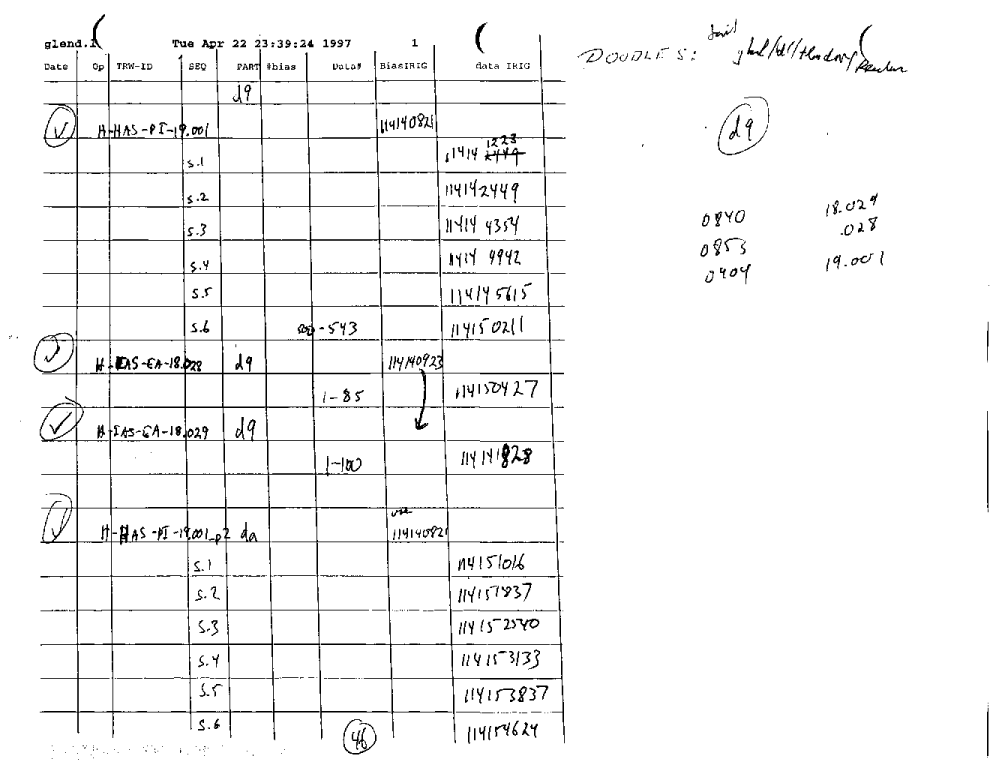 glend.1 Tue Apr 22 23:39:24 1997 1
Date Op TRW-ID SEQ PART #bias Data# BiasIRIG data IRIG
d9
✓ H-HAS-PI-19.001 11414082
1223
s.1 11414 2449
s.2 114142449
s.3 11414 4354
s.4 11414 4942
s.5 114145615
s.6 -543 114150211
✓ H-EAS-EA-18.028 d9 114140923
1-85 114150427
✓ H-EAS-EA-18.029 d9
1-100 114141828
use
✓ H-HAS-PI-19.001_p2 da 114140821
S.1 114151016
S.2 114151837
S.3 114152540
S.4 114153133
S.5 114153837
S.6 114154624
46
DOODLES:
d9
0840 18.029
0853 .028
0904 19.001